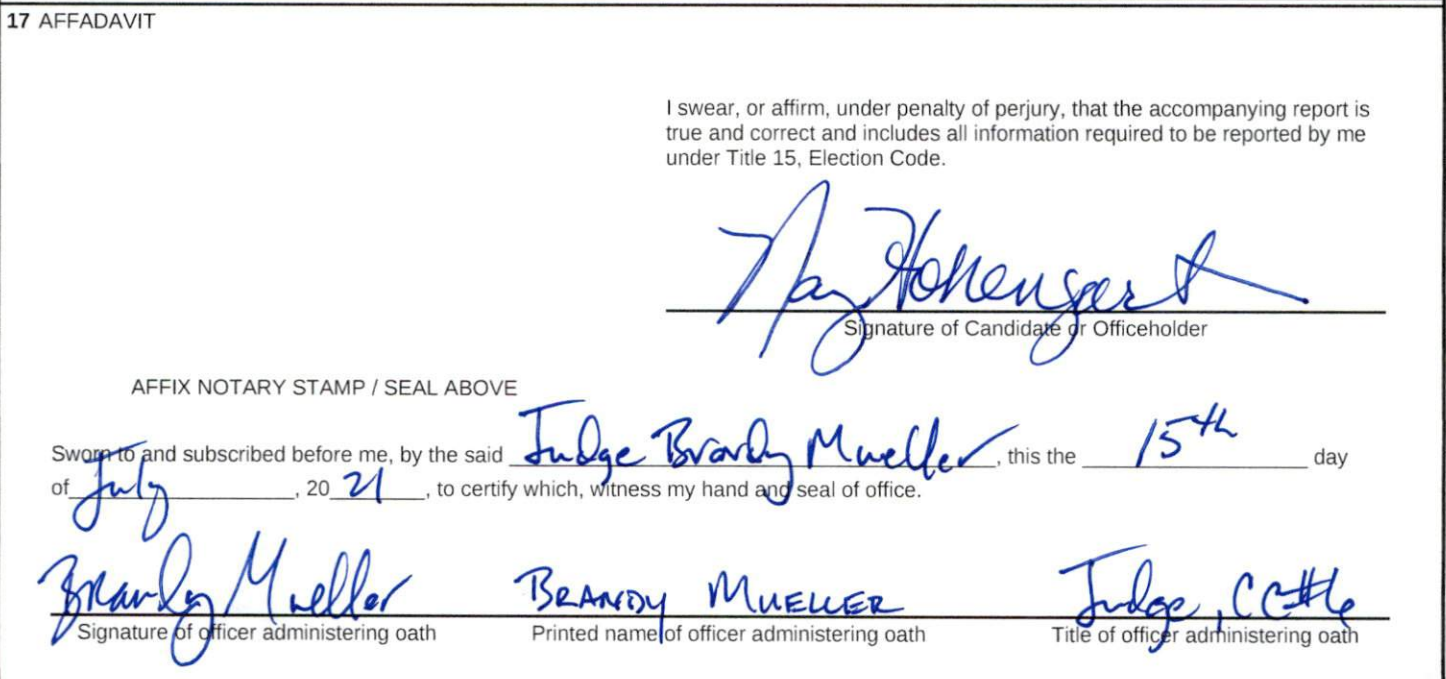 17 AFFADAVIT
I swear, or affirm, under penalty of perjury, that the accompanying report is
true and correct and includes all information required to be reported by me
under Title 15, Election Code.
Signature of Candidate or Officeholder
AFFIX NOTARY STAMP / SEAL ABOVE
Sworn to and subscribed before me, by the said Judge Brandy Mueller, this the 15th day
of July, 20 21, to certify which, witness my hand and seal of office.
Brandy Mueller BRANDY MUELLER Judge, CC#6
Signature of officer administering oath Printed name of officer administering oath Title of officer administering oath